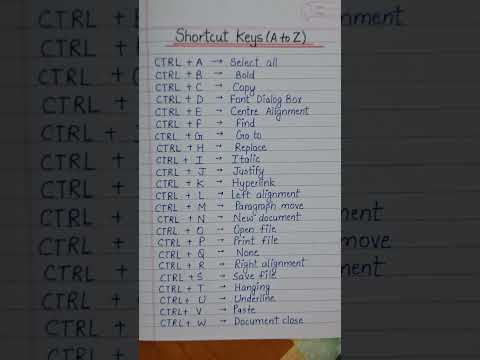 Shortcut Keys (A to Z)
CTRL + A → Select all
CTRL + B → Bold
CTRL + C → Copy
CTRL + D → Font Dialog Box
CTRL + E → Centre Alignment
CTRL + F → Find
CTRL + G → Go to
CTRL + H → Replace
CTRL + I → Italic
CTRL + J → Justify
CTRL + K → Hyperlink
CTRL + L → Left alignment
CTRL + M → Paragraph move
CTRL + N → New document
CTRL + O → Open file
CTRL + P → Print file
CTRL + Q → None
CTRL + R → Right alignment
CTRL + S → Save file
CTRL + T → Hanging
CTRL + U → Underline
CTRL + V → Paste
CTRL + W → Document close